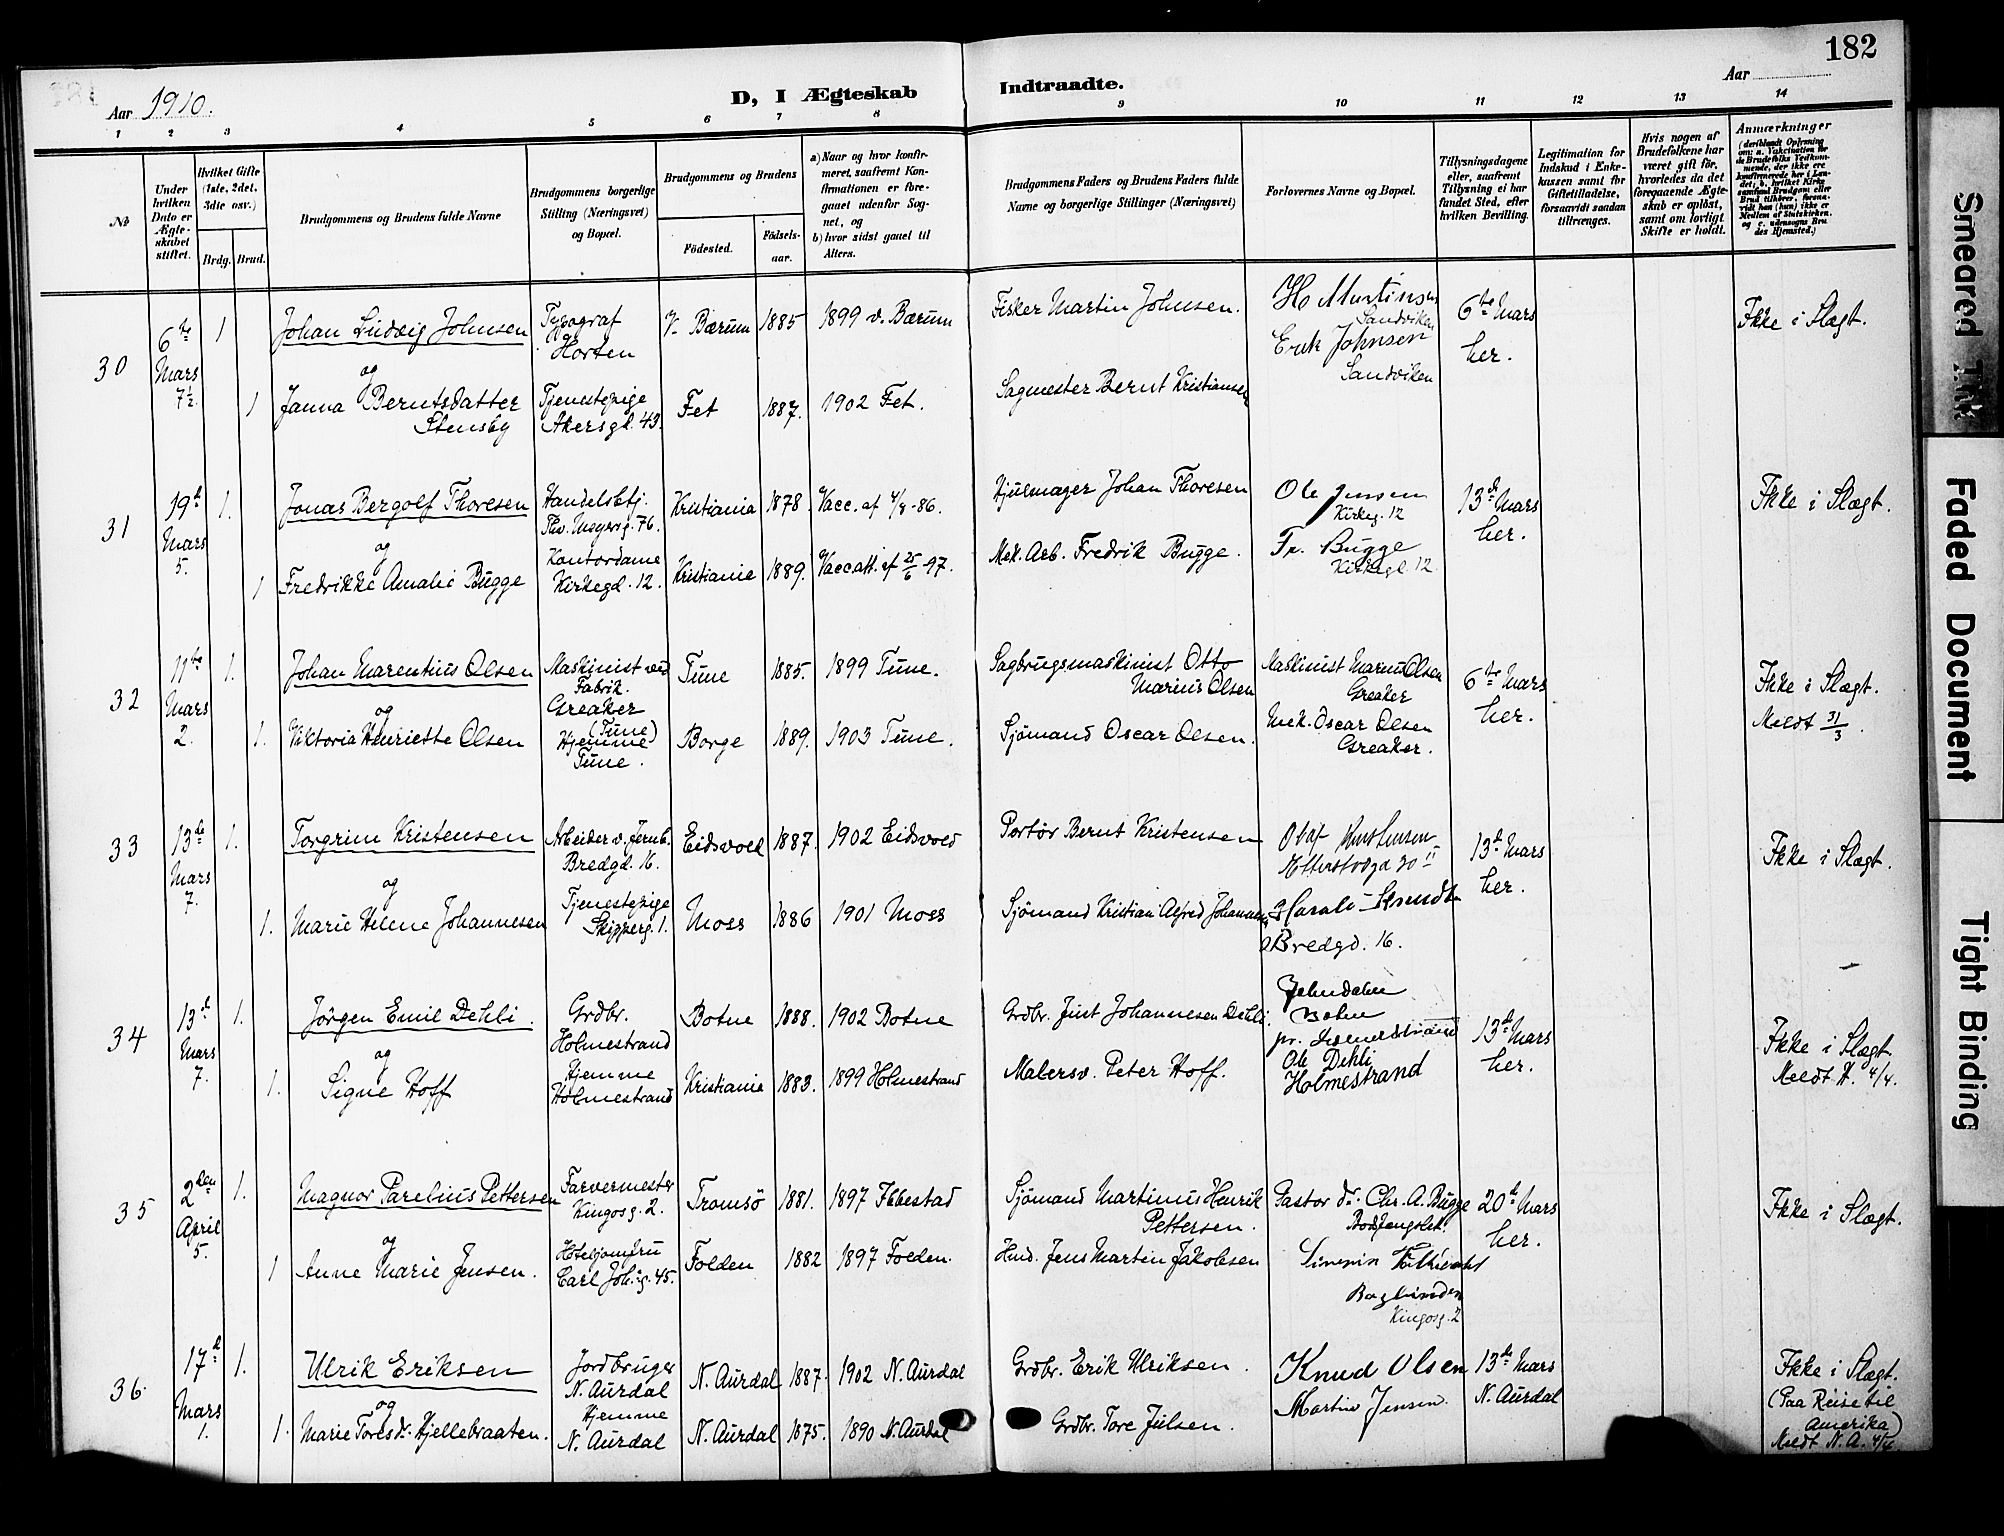 182
Aar 1910.
D, I Ægteskab Indtraadte.
Aar
1 2 3 4 5 6 7 8 9 10 11 12 13 14
№
Under hvilken Dato er Ægteskabet stiftet.
Hvilket Gifte (1ste, 2det, 3die osv.)
Brdg. Brud.
Brudgommens og Brudens fulde Navne
Brudgommens borgerlige Stilling (Næringsvei) og Bopæl.
Brudgommens og Brudens
Födested.
Födselsaar.
a) Naar og hvor konfirmeret, saafremt Konfirmationen er foregaaet udenfor Sognet, og
b) hvor sidst gaaet til Alters.
Brudgommens Faders og Brudens Faders fulde Navne og borgerlige Stillinger (Næringsvei)
Forlovernes Navne og Bopæl.
Tillysningsdagene eller, saafremt Tillysning ei har fundet Sted, efter hvilken Bevilling.
Legitimation for Indskud i Enkekassen samt for Giftetilladelse, forsaavidt saadan tiltrænges.
Hvis nogen af Brudefolkene har været gift för, hvorledes da det foregaaende Ægteskab er oplöst, samt om lovligt Skifte er holdt.
Anmærkninger
(deriblandt Oplysning om: a. Vakcination for de Brudefolks Vedkommende, der ikke ere konfirmerede her i Landet; b. hvilket Kirkesamfund Brudgom eller Brud tilhörer, forsaavidt han (hun) ikke er Medlem af Statskirken, og c. udensogns Brudes Hjemsted.)
30 6te Mars 7½ 1 Johan Ludvig Johnsen Typograf Horten V. Bærum 1885 1899 V. Bærum Fisker Martin Johnsen. H Martinsen Sandviken Erik Johnsen Sandviken 6te Mars her. Ikke i Slægt.
og
1 Janna Berntsdatter Stensby Tjenestepige Akersgt. 43. Fet 1887. 1902 Fet. Sagmester Bernt Kristiansen
31 19d Mars 5. 1. Jonas Bergolf Thoresen Handelsbetj. Thv. Meyersg. 76. Kristiania 1878. Vacc. af 4/9-86. Hjulmager Johan Thoresen Ole Jensen Kirkeg. 12 13de Mars her. Ikke i Slægt.
og
1 Fredrikke Amalie Bugge Kontordame Kirkegd. 12. Kristiania 1889. Vacc.att. af 25/6-97. Mek. Arb. Fredrik Bugge. Fr. Bugge Kirkegt. 12.
32 11te Mars 2. 1. Johan Marentius Olsen Maskinist ved Fabrik. Greaker (Tune) Tune 1885. 1899 Tune. Sagbrugsmaskinist Otto Marius Olsen Maskinist Marius Olsen Greaker 6te Mars her. Ikke i Slægt. Meldt 31/3.
og
1. Viktoria Henriette Olsen Hjemme Tune. Borge 1889. 1903 Tune. Sjömand Oscar Olsen. Mek. Oscar Olsen Greaker.
33 13de Mars 7. 1. Torgrim Kristensen Arbeider v. Jernb. Bredgd. 16. Eidsvold 1887. 1902 Eidsvold Portör Bernt Kristensen Olaf Kristensen Etterstadgd 20 II 13de Mars her. Ikke i Slægt.
og
1. Marie Helene Johannesen Tjenestepige Skipperg. 1. Moss 1886 1901 Moss Sjömand Kristian Alfred Johannesen Harald Bredgd. 16.
34 13de Mars 7. 1. Jörgen Emil Dehli. Grdbr. Holmestrand Botne 1888. 1902 Botne Grdbr. Johannesen Dehli. pr. Holmestrand 13de Mars her. Ikke i Slægt. Meldt H. 4/4.
og
1. Signe Hoff Hjemme Holmestrand Kristiania 1883. 1899 Holmestrand Malersv. Peter Hoff. Ole Dehli Holmestrand
35 2den April 5. 1. Magnor Parelius Pettersen Farvermester Kingosg. 2. Tromsö 1881. 1897 Ibbestad Sjömand Martinus Henrik Pettersen. Pastor dr. Chr. A. Bugge Bodsfengslet. 20de Mars her. Ikke i Slægt.
og
1 Anne Marie Jensen. Hoteljomfru Carl Joh.g. 45. Folden 1882 1897 Folden. Husd. Jens Martin Jakobsen Kingosg. 2
36. 17de Mars 1. 1. Ulrik Eriksen Jordbruger N. Aurdal N. Aurdal 1887. 1902 N. Aurdal Grdbr. Erik Ulriksen. Knud Olsen 13de Mars N. Aurdal Ikke i Slægt. (Paa Reise til Amerika) Meldt N. A. 4/4
og
1. Marie Toresdr. Hjellebraaten. Hjemme N. Aurdal N. Aurdal 1875. 1890 N. Aurdal Grdbr. Tore Julsen. Martin Jensen.
Smeared Ink
Faded Document
Tight Binding